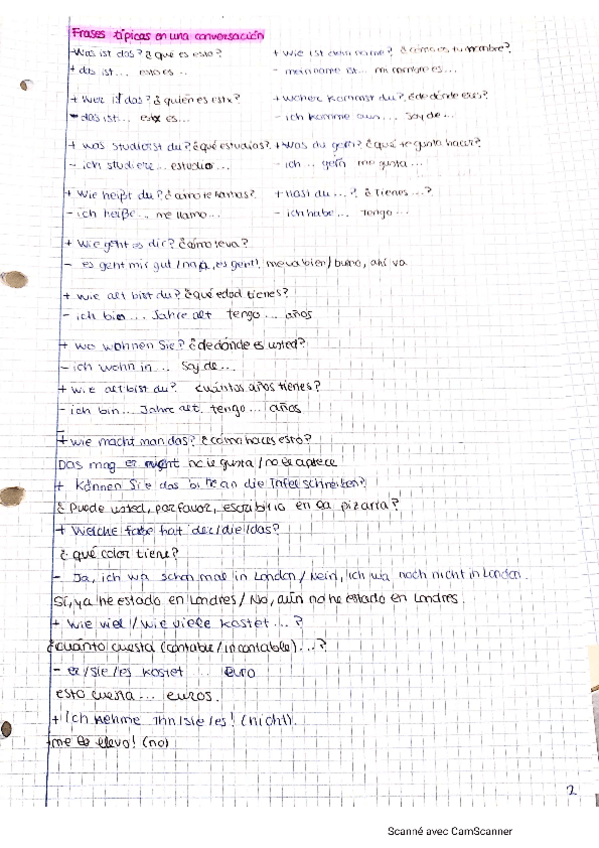 Frases típicas en una conversación
- Was ist das? ¿qué es esto?
+ das ist... esto es..
+ wie ist dein name? ¿cómo es tu nombre?
- mein name ist... mi nombre es...
+ Wer ist das? ¿quién es esta?
- das ist... esta es...
+ woher kommst du? ¿de dónde eres?
- ich komme aus... soy de...
+ was studierst du? ¿qué estudias?
- ich studiere... estudio...
+ Was du gern? ¿qué te gusta hacer?
- ich .. gern me gusta...
+ Wie heißt du? ¿cómo te llamas?
- ich heiße... me llamo...
+ Hast du ...? ¿Tienes...?
- ich habe... tengo...
+ Wie geht es dir? ¿cómo te va?
- es geht mir gut / naja, es geht! me va bien / bueno, ahí va
+ wie alt bist du? ¿qué edad tienes?
- ich bin... Jahre alt tengo... años
+ wo wohnen Sie? ¿de dónde es usted?
- ich wohn in... soy de...
+ wie alt bist du? cuántos años tienes?
- ich bin... Jahre alt. tengo... años
+ wie macht man das? ¿cómo haces esto?
Das mag er nicht no le gusta / no le apetece
+ Können Sie das bitte an die Tafel schreiben?
¿Puede usted, por favor, escribirlo en la pizarra?
+ Welche fabe hat der/die/das?
¿qué color tiene?
- Ja, ich wa schon mal in London / Nein, ich wa noch nicht in London.
Sí, ya he estado en Londres / No, aún no he estado en Londres.
+ wie viel / wie viele kostet...?
¿cuánto cuesta (contable / incontable)...?
- er/sie/es kostet ... euro
esto cuesta... euros.
+ Ich nehme ihn/sie/es! (nicht).
me lo llevo! (no)
2
Scanné avec CamScanner